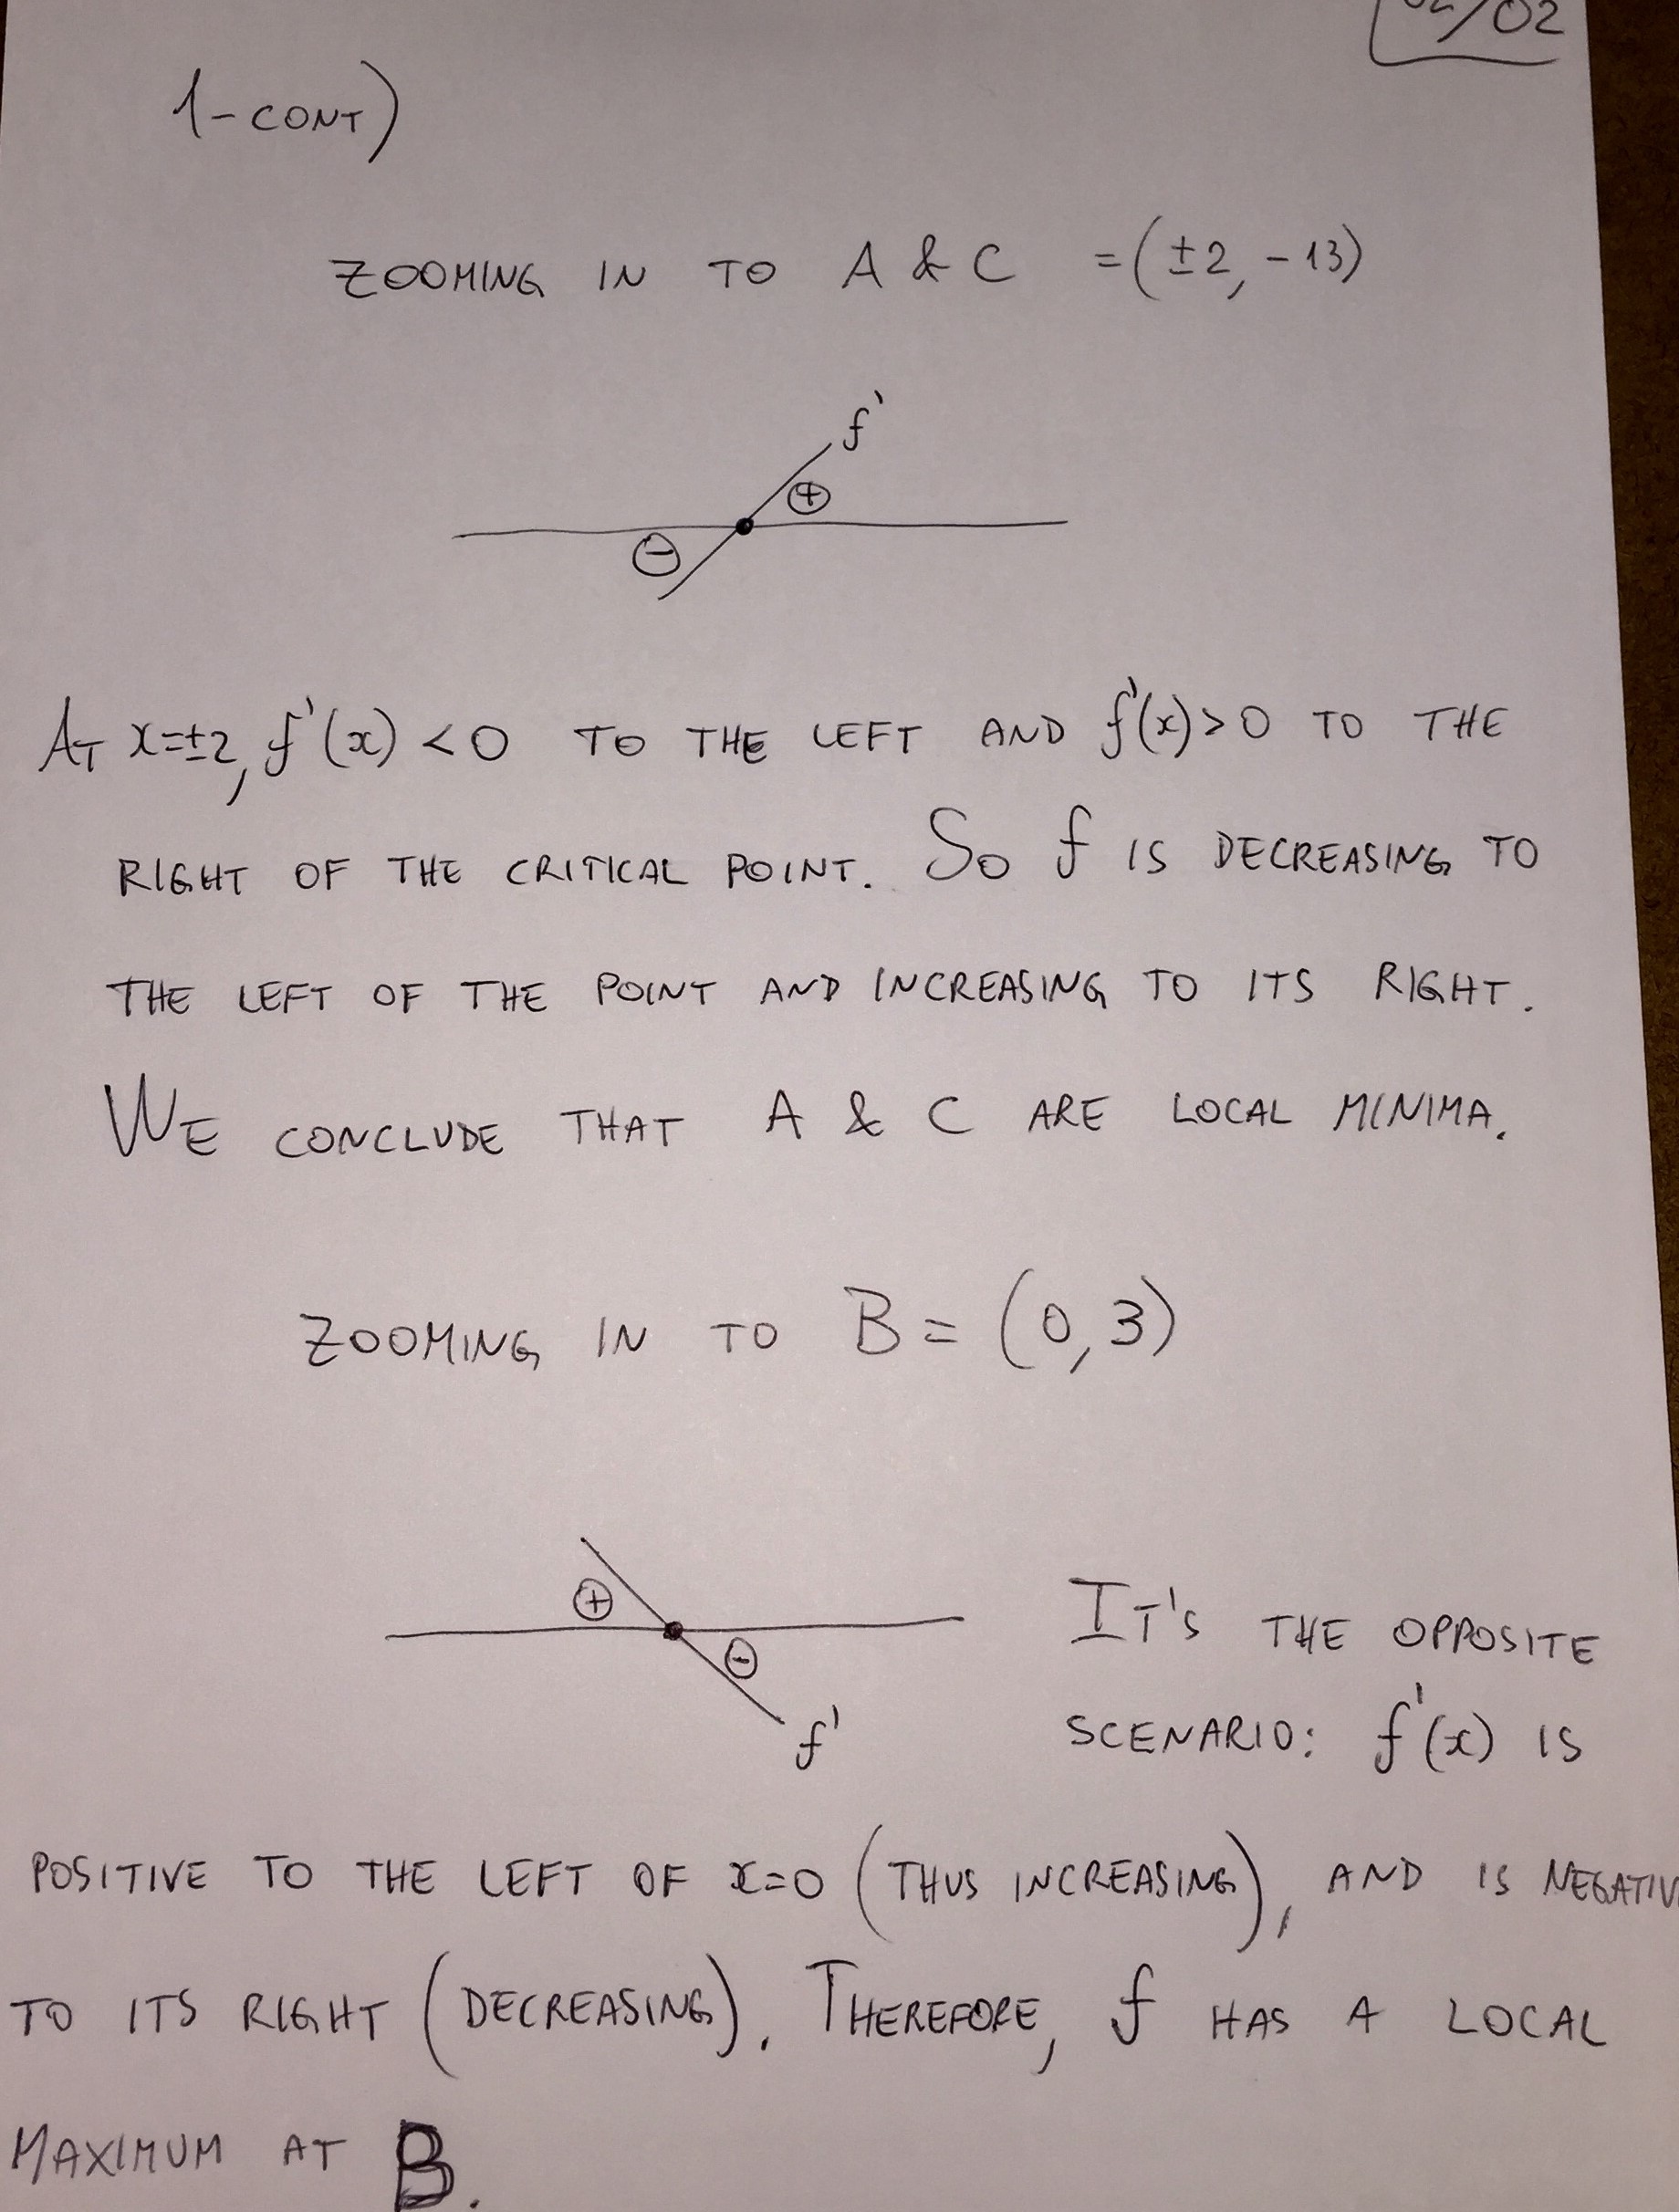 /02
1-CONT)
ZOOMING IN TO A & C = (±2, -13)
f'
+
−
AT x=±2, f'(x) < 0 TO THE LEFT AND f'(x) > 0 TO THE
RIGHT OF THE CRITICAL POINT. SO f IS DECREASING TO
THE LEFT OF THE POINT AND INCREASING TO ITS RIGHT.
WE CONCLUDE THAT A & C ARE LOCAL MINIMA.
ZOOMING IN TO B = (0,3)
+
−
f'
IT'S THE OPPOSITE
SCENARIO: f'(x) IS
POSITIVE TO THE LEFT OF x=0 (THUS INCREASING), AND IS NEGATIV
TO ITS RIGHT (DECREASING). THEREFORE, f HAS A LOCAL
MAXIMUM AT B.